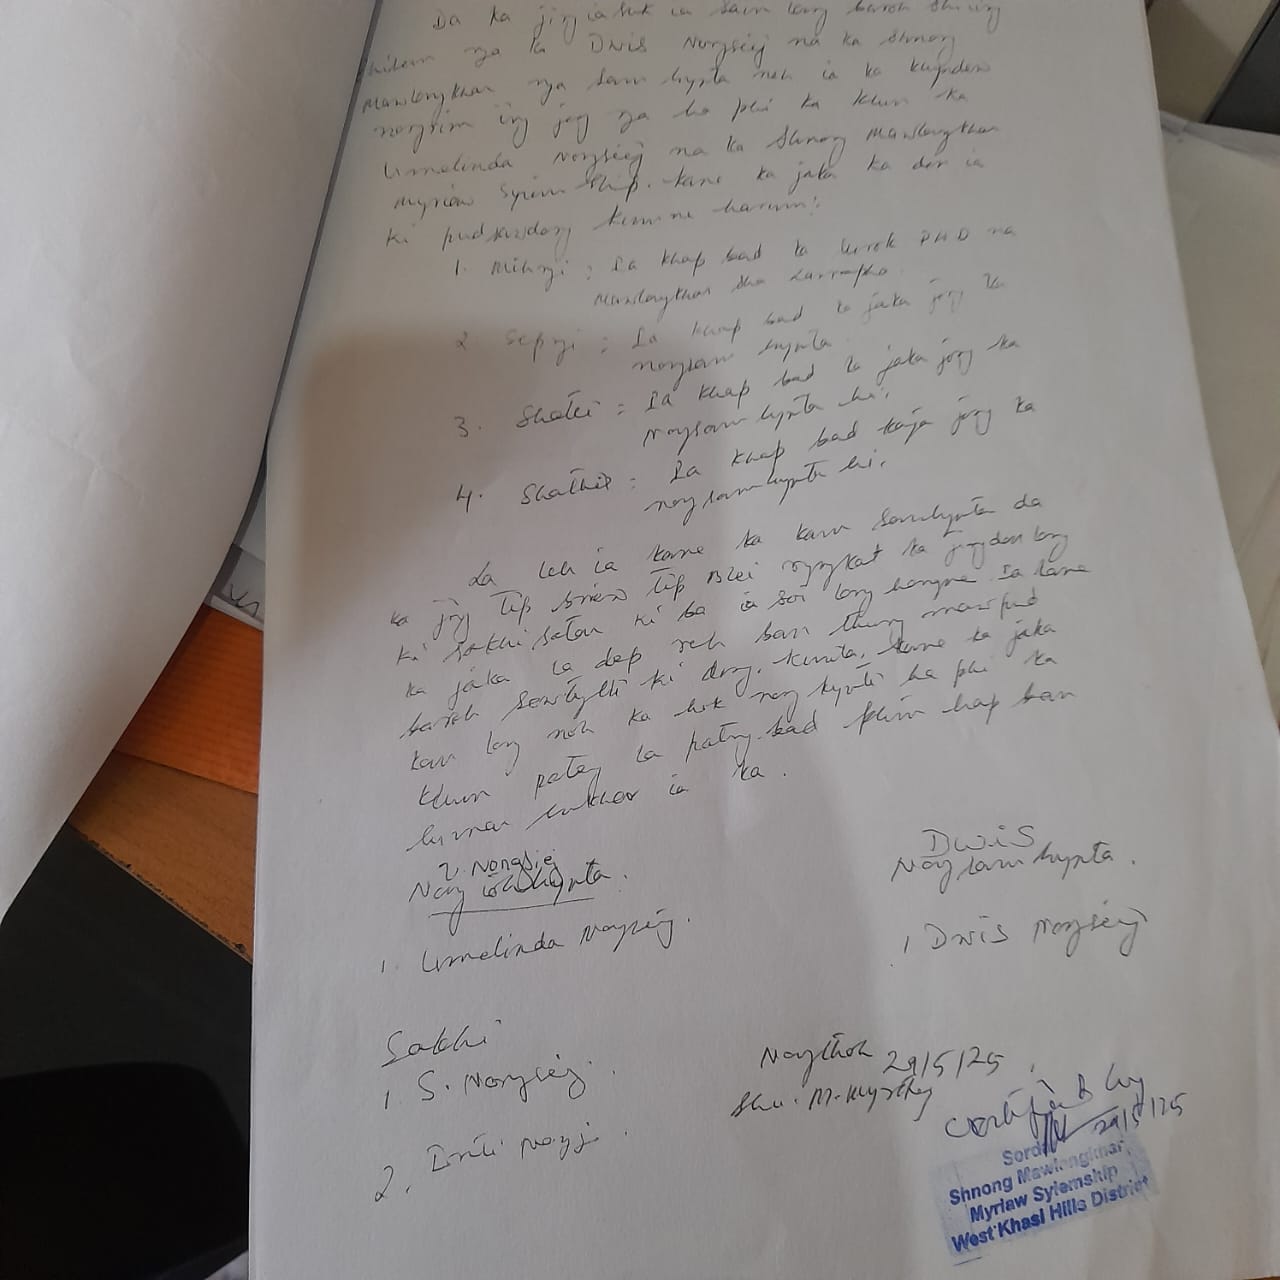 Da ka jingiasuk ia sam lang baroh shiing
shilem nga ka Dwis Nongsiej na ka shnong
Mawlangkhar nga sam hynta noh ia ka khyndew
nongrim ïing jong nga ha phi ka khun ka
Urmelinda Nongsiej na ka Shnong Mawlangkhar
Myriaw Syiemship. Kane ka jaka ka don ia
ki pudkiwdong kumne harum:
1. Mihngi : Ia khap bad ka surok PWD na
Mawlangkhar sha
2. Sepngi : Ia khap bad ka jaka jong ka
nongsam hynta
3. Shatei : Ia khap bad ka jaka jong ka
Nongsam hynta hi.
4. Shathie : Ia khap bad kaja jong ka
nongsamhynta hi.
La leh ia kane ka kam samhynta da
ka jing tip briew tip Blei ryngkat ka jingdon lang
ki sakhi sotan ki ba ia soi lang hangne. Ia kane
ka jaka la dep reh ban thung mawpud
baroh sawtylli ki dong. Kumta, kane ka jaka
kan long noh ka hok nong hynta ha phi ka
khun pateng la pateng bad phim hap ban
kumar ia ka.
Nongsiej
Nong ioh hynta.
Dwis
Nongsam hynta.
1. Urmelinda Nongsiej.
1 Dwis Nongsiej
Sakhi
1. S. Nongsiej.
2.
Nongthoh 29/5/25
Shu. M.
Certified by
29/5/25
Sordar
Shnong Mawlangkhar,
Myriaw Syiemship
West Khasi Hills District